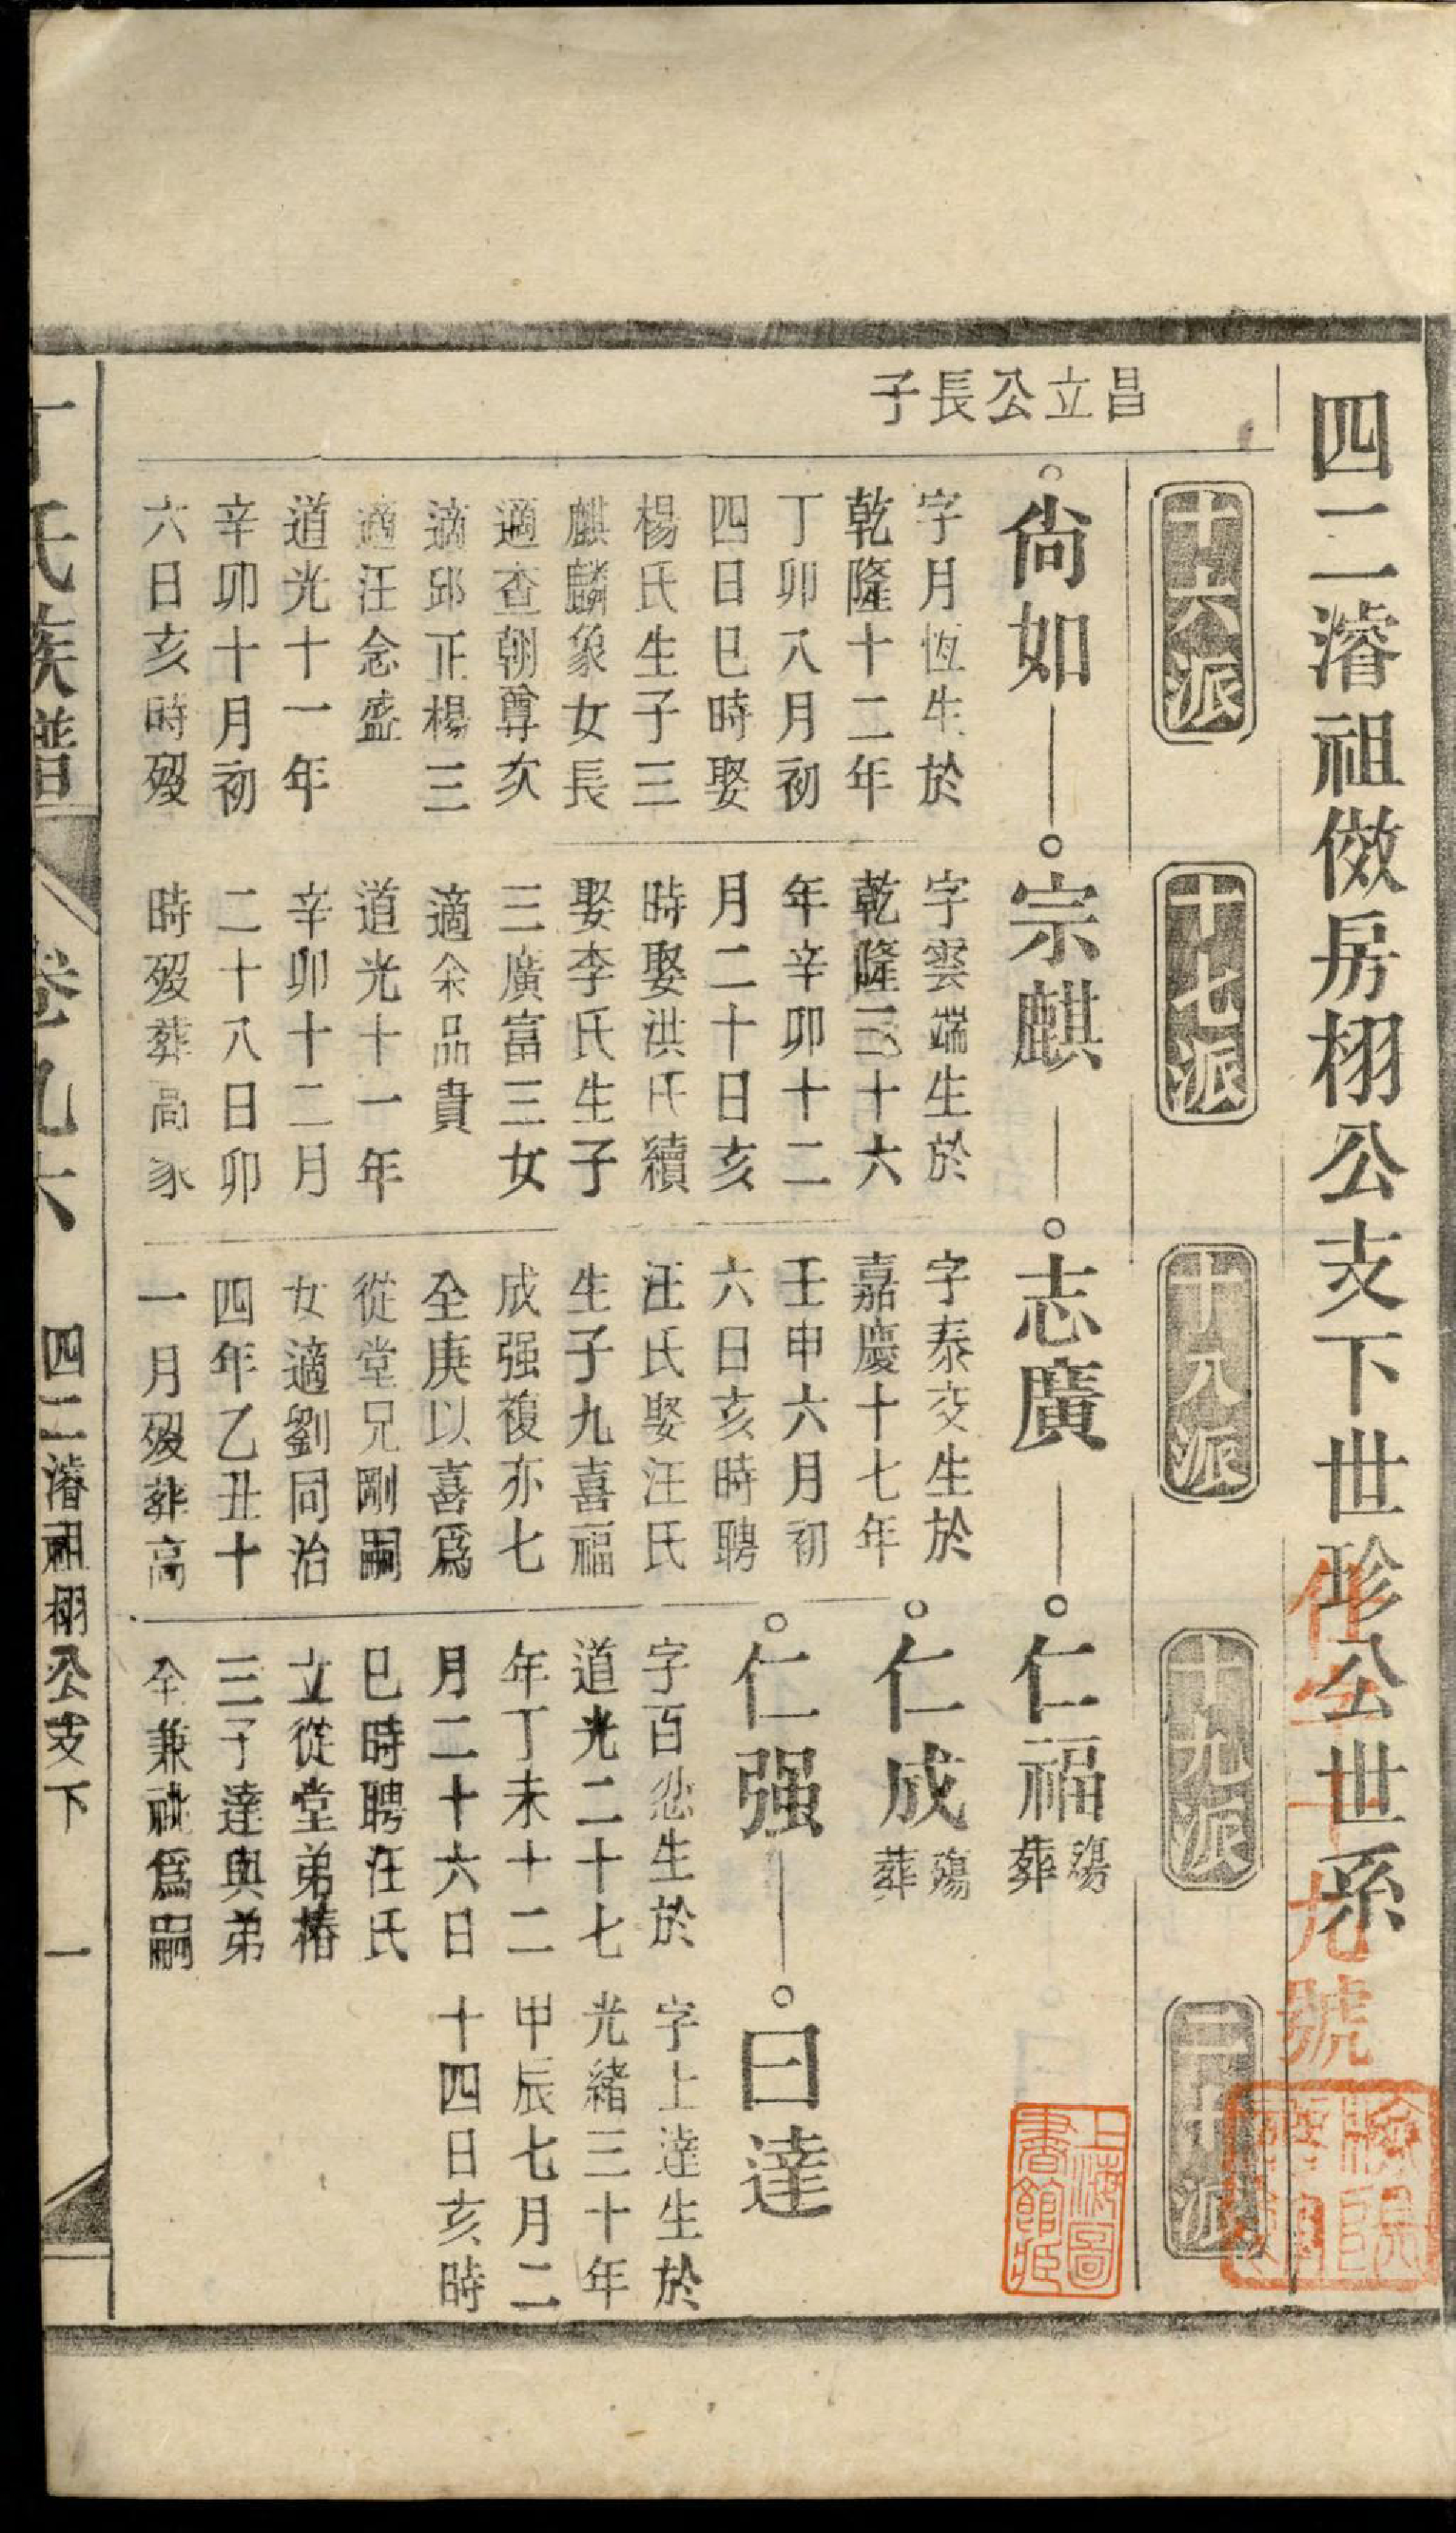 四二濬祖倣房栩公支下世珍公世系
十六派
十七派
十八派
十九派
二十派
昌立公長子
尙如
字月恆生於
乾隆十二年
丁卯八月初
四日巳時娶
楊氏生子三
麒麟象女長
適查朝尊次
適邱正楊三
適汪念盛
道光十一年
辛卯十月初
六日亥時歿
宗麒
字雲端生於
乾隆三十六
年辛卯十二
月二十日亥
時娶洪氏續
娶李氏生子
三廣富三女
適余品貴
道光十一年
辛卯十二月
二十八日卯
時歿葬高家
志廣
字泰交生於
嘉慶十七年
壬申六月初
六日亥時聘
汪氏娶汪氏
生子九喜福
成强複亦七
全庚以喜爲
從堂兄剛嗣
女適劉同治
四年乙丑十
一月歿葬高
仁福 殤葬
仁成 殤葬
仁强
字百忍生於
道光二十七
年丁未十二
月二十六日
巳時聘汪氏
立從堂弟椿
三子達與弟
全兼祧爲嗣
曰達
字上達生於
光緒三十年
甲辰七月二
十四日亥時
丁氏族譜
卷九六
四二濬祖栩公支下
一
上海圖
書館藏
九號